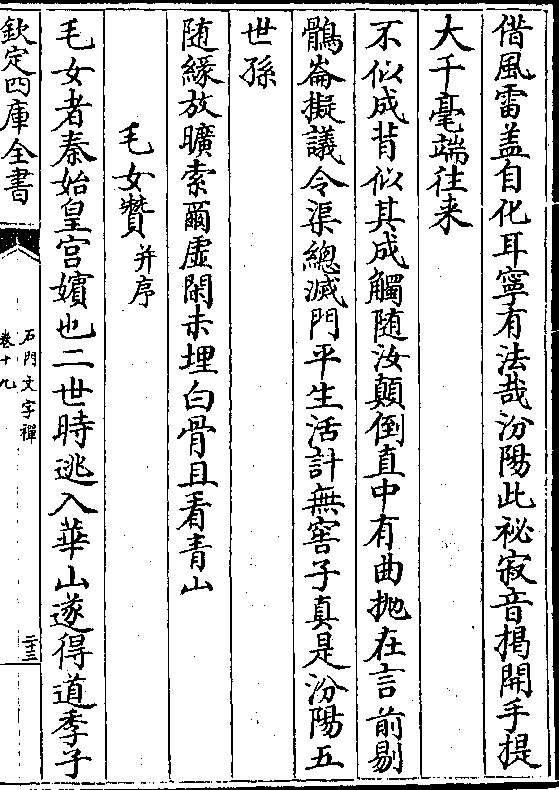 借風雷盖自化耳寧有法哉汾陽此祕寂音揭開手提
大千毫端往来
不似成背似其成觸随汝顛倒直中有曲抛在言前剔
鶻崙擬議令渠總滅門平生活計無窖子真是汾陽五
世孫
随緣放曠索爾虛閑未埋白骨且看青山
毛女贊并序
毛女者秦始皇宫嬪也二世時逃入華山遂得道季子
欽定四庫全書
石門文字禪
卷十九
二十三